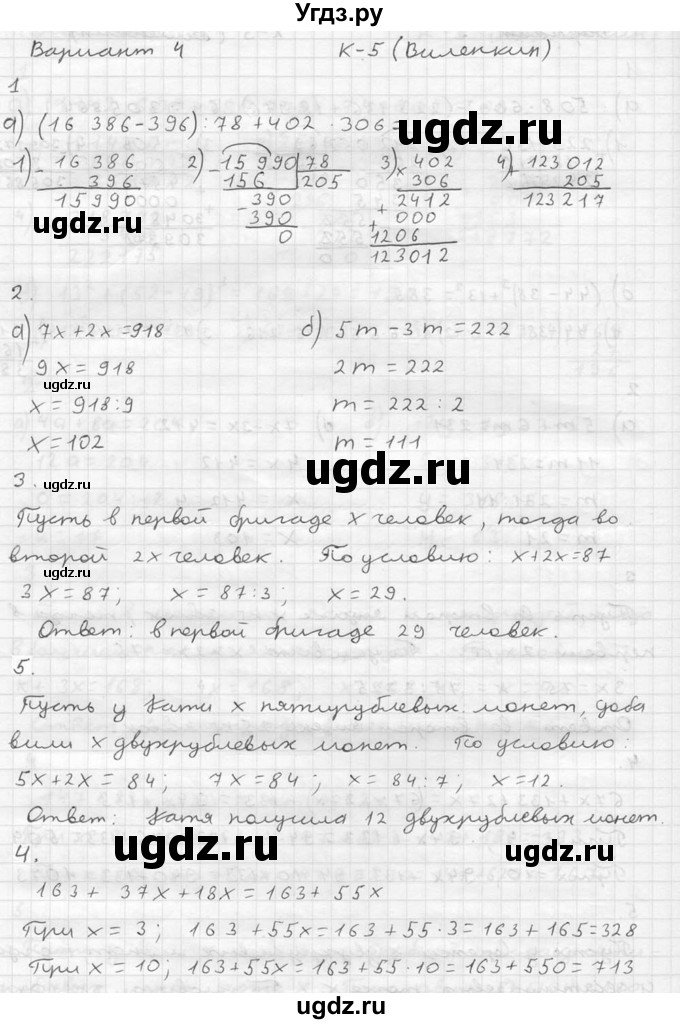 Угдз.ру
Вариант 4 К-5 (Виленкин)
1
а) (16 386-396):78+402·306=
ugdz.ru
1) - 16 386 2) - 15 990 | 78 3) × 402 4) + 123 012
396 156 205 306 205
15 990 - 390 2412 123 217
ugdz.ru
390 + 000
0 + 1206
123 012
2.
а) 7x+2x=918 б) 5m-3m=222
9x=918 2m=222
ugdz.ru
x=918:9 m=222:2
x=102 m=111
ugdz.ru ugdz.ru
3.
Пусть в первой бригаде x человек, тогда во
второй 2x человек. По условию: x+2x=87
ugdz.ru
3x=87; x=87:3; x=29.
Ответ: в первой бригаде 29 человек.
5.
Пусть у Кати x пятирублевых монет, доба
вили x двухрублевых монет. По условию:
5x+2x=84; 7x=84; x=84:7; x=12.
Ответ: Катя получила 12 двухрублевых монет.
4. ugdz.ru ugdz.ru
163+37x+18x=163+55x
При x=3; 163+55x=163+55·3=163+165=328
При x=10; 163+55x=163+55·10=163+550=713
ugdz.ru